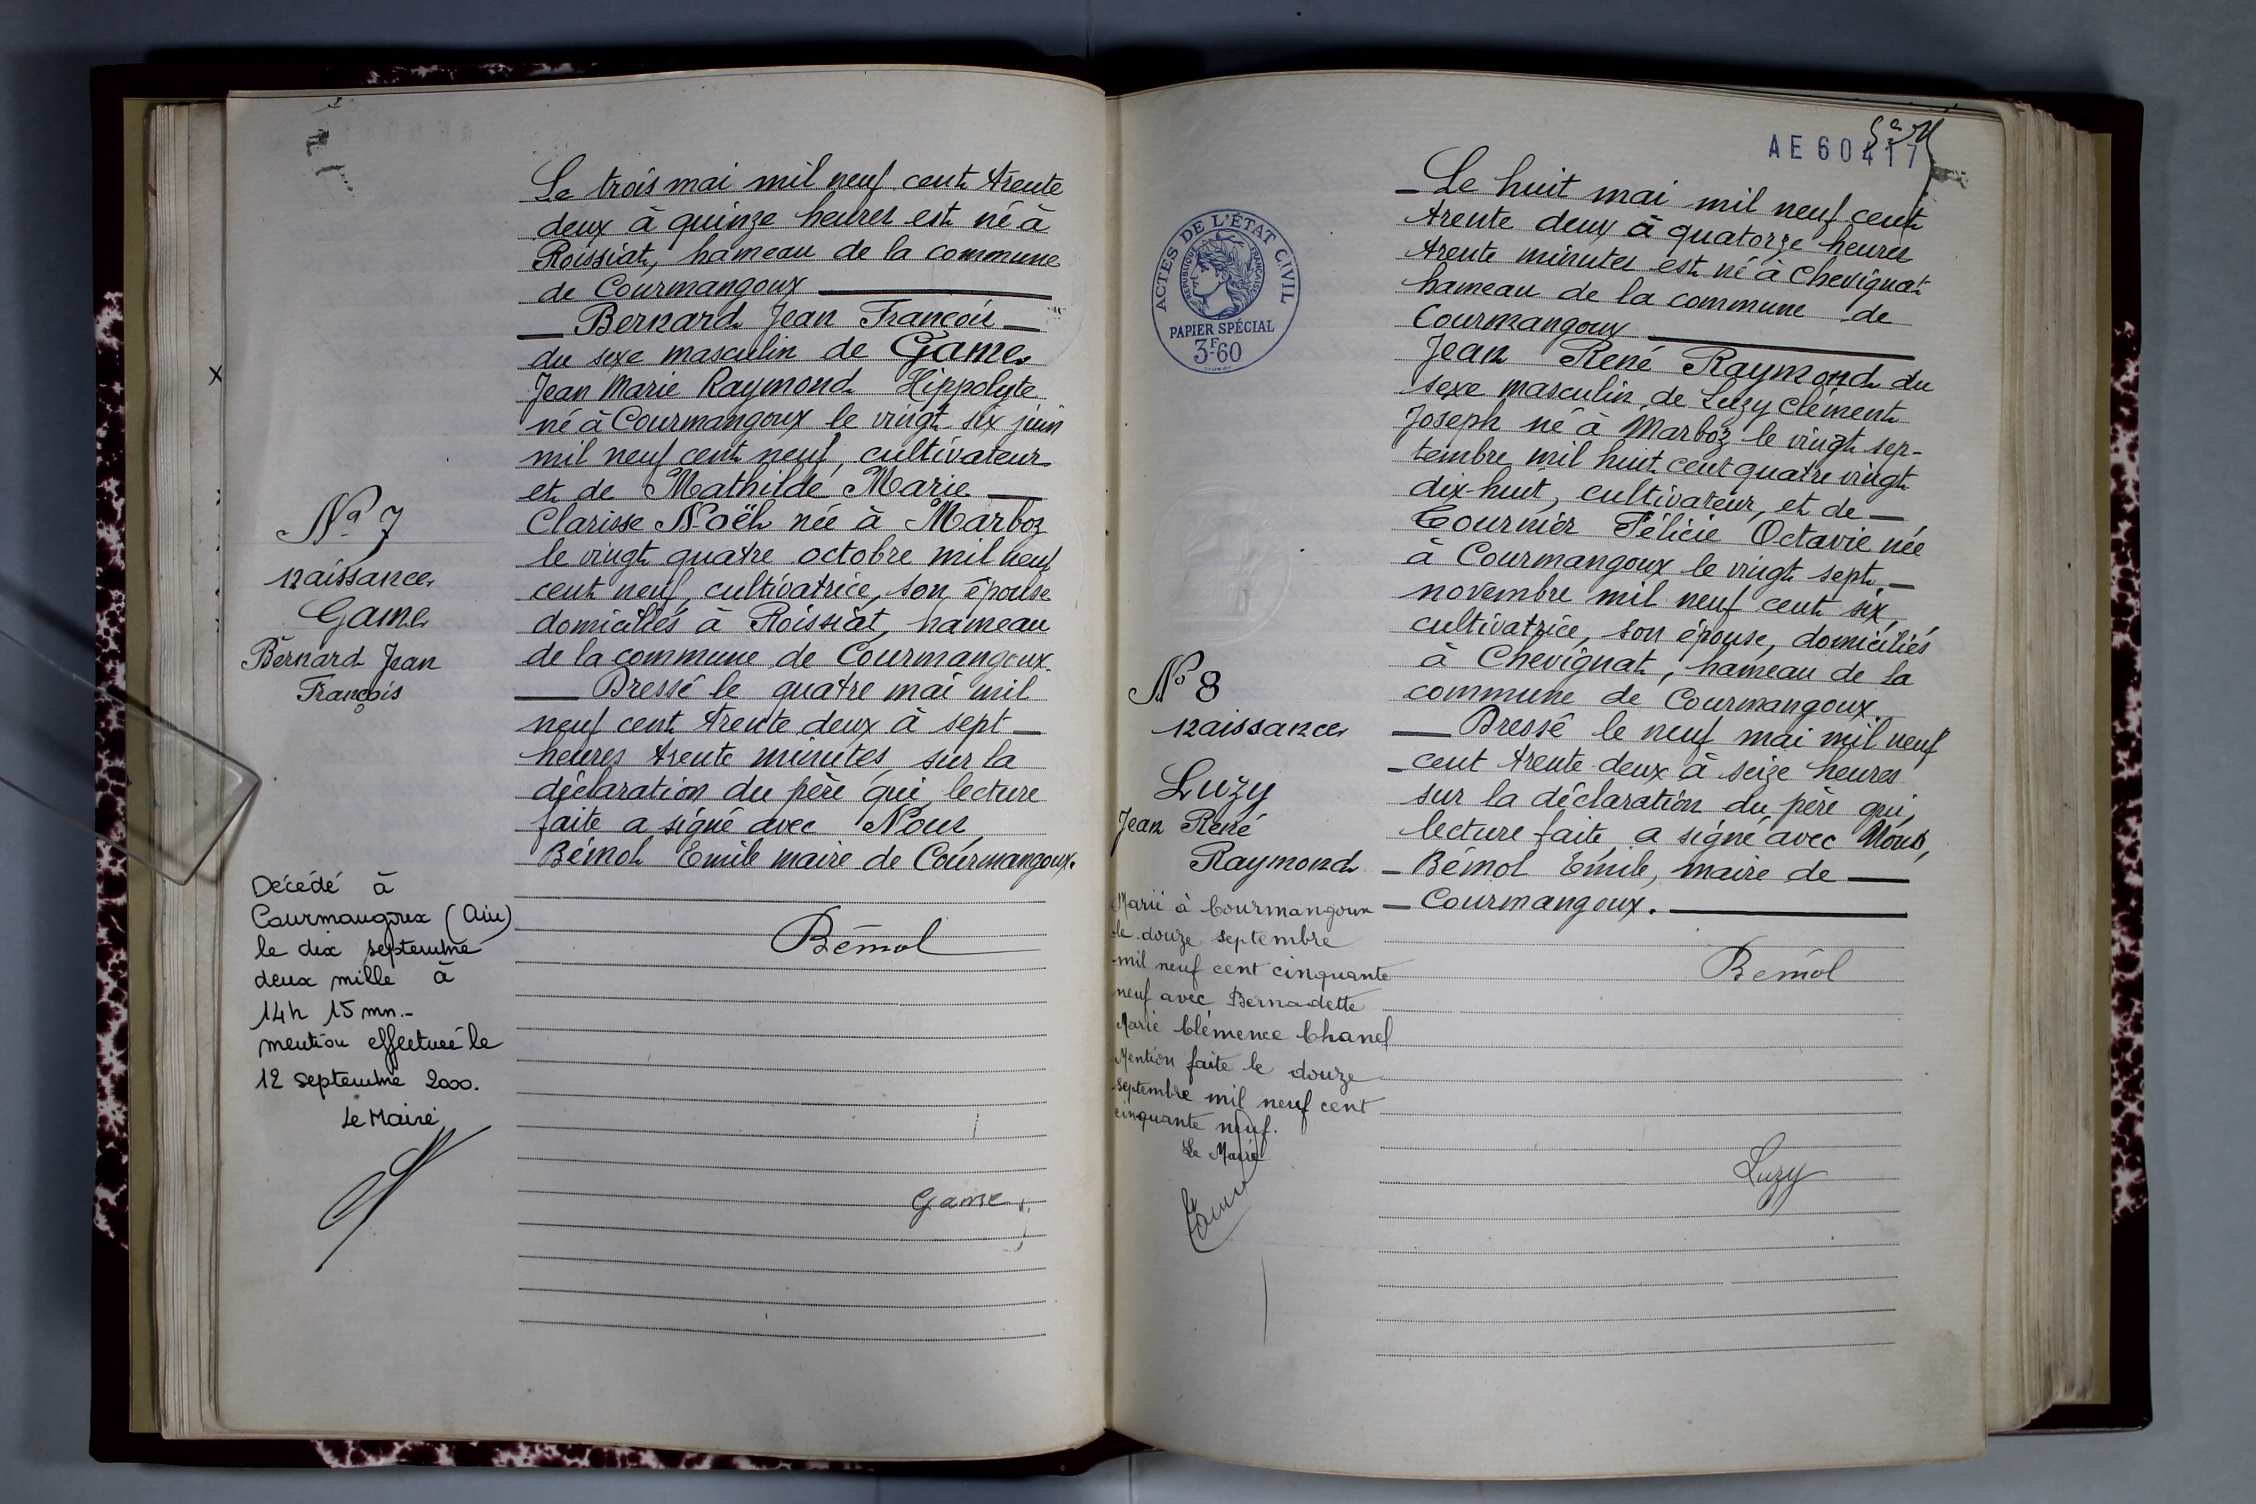 Le trois mai mil neuf cent trente
deux à quinze heures est né à
Roissiat, hameau de la commune
de Courmangoux
Bernard Jean François
du sexe masculin de Game
Jean Marie Raymond Hippolyte
né à Courmangoux le vingt six juin
mil neuf cent neuf, cultivateur
et de Mathilde Marie
Clarisse Noël née à Marboz
le vingt quatre octobre mil neuf
cent neuf, cultivatrice, son épouse
domiciliés à Roissiat, hameau
de la commune de Courmangoux.
Dressé le quatre mai mil
neuf cent trente deux à sept
heures trente minutes, sur la
déclaration du père qui, lecture
faite a signé avec Nous,
Bémol Emile maire de Courmangoux.
Bémol
Game
No 7
naissance
Game
Bernard Jean
François
Décédé à
Courmangoux (Ain)
le dix septembre
deux mille à
14h 15 mn.-
mention effectuée le
12 septembre 2000.
Le Maire
AE 60417
Le huit mai mil neuf cent
trente deux à quatorze heures
trente minutes est né à Chevignat
hameau de la commune de
Courmangoux
Jean René Raymond du
sexe masculin, de Luzy Clément
Joseph né à Marboz le vingt sep-
tembre mil huit cent quatre vingt
dix huit, cultivateur, et de
Tournier Félicie Octavie née
à Courmangoux le vingt sept
novembre mil neuf cent six,
cultivatrice, son épouse, domiciliés
à Chevignat, hameau de la
commune de Courmangoux.
Dressé le neuf mai mil neuf
cent trente deux à seize heures
sur la déclaration du père qui,
lecture faite, a signé avec Nous,
Bémol Emile, maire de
Courmangoux.
Bémol
Luzy
ACTES DE L'ÉTAT CIVIL
RÉPUBLIQUE FRANÇAISE
PAPIER SPÉCIAL
3F60
No 8
naissance
Luzy
Jean René
Raymond
Marié à Courmangoux
le douze septembre
mil neuf cent cinquante
neuf avec Bernadette
Marie Clémence Chanel
Mention faite le douze
septembre mil neuf cent
cinquante neuf.
Le Maire